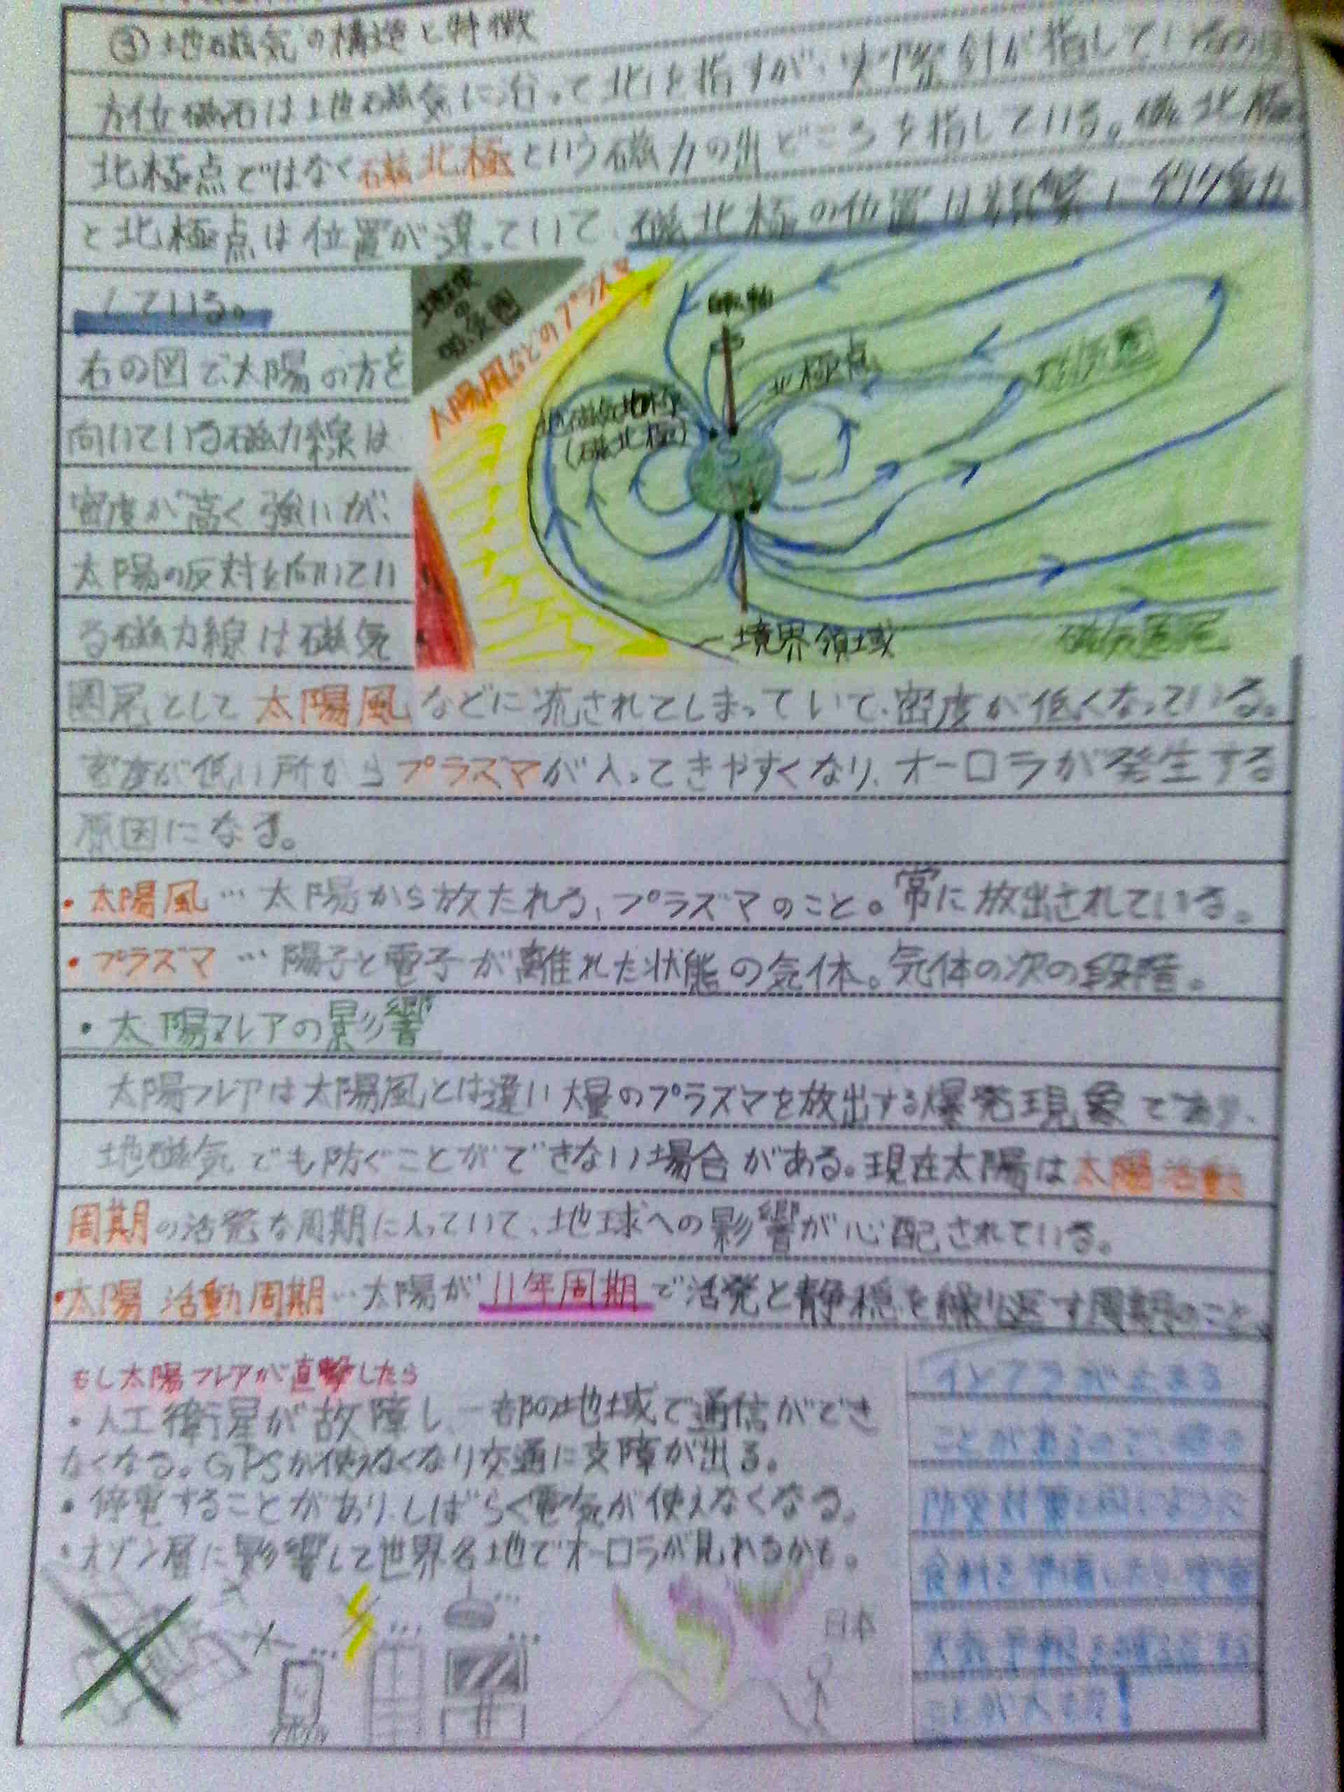 ③地磁気の構造と特徴
方位磁石は地磁気に沿って北を指すが、実際針が指しているのは
北極点ではなく磁北極という磁力の出どころを指している。磁北極
と北極点は位置が違っていて、磁北極の位置は頻繁に移動
している。
右の図で太陽の方を
向いている磁力線は
密度が高く強いが、
太陽の反対を向いてい
る磁力線は磁気
圏尾として太陽風などに流されてしまっていて、密度が低くなっている。
密度が低い所からプラズマが入ってきやすくなり、オーロラが発生する
原因になる。
地球
の
太陽風などのプラズマ
自転軸
北極点
磁気圏
地磁気北極
(磁北極)
S
N
境界領域
磁気圏尾
・太陽風…太陽から放たれる、プラズマのこと。常に放出されている。
・プラズマ…陽子と電子が離れた状態の気体。気体の次の段階。
・太陽フレアの影響
太陽フレアは太陽風とは違い大量のプラズマを放出する爆発現象であり、
地磁気でも防ぐことができない場合がある。現在太陽は太陽活動
周期の活発な周期に入っていて、地球への影響が心配されている。
・太陽活動周期…太陽が11年周期で活発と静穏を繰り返す周期のこと。
もし太陽フレアが直撃したら
・人工衛星が故障し、一部の地域で通信ができ
なくなる。GPSが使えなくなり交通に支障が出る。
・停電することがあり、しばらく電気が使えなくなる。
・オゾン層に影響して世界各地でオーロラが見れるかも。
日本
インフラが止まる